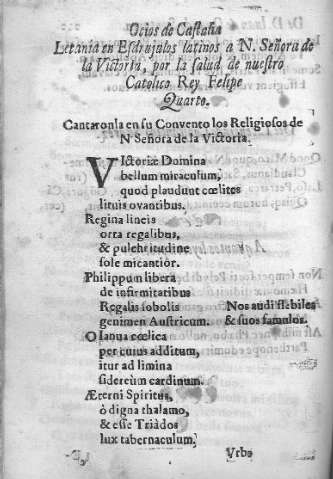 Ocios de Castalia
Letania en Esdrujulos latinos a N. Señora de
la Victoria, por la salud de nuestro
Catolico Rey Felipe
Quarto.
Cantaronla en su Convento los Religiosos de
N Señora de la Victoria.
VIctoriæ Domina
bellum miraculum,
quod plaudunt cœlites
lituis ovantibus.
Regina lineis
orta regalibus,
& pulchritudine
sole micantiòr.
Philippum libera
de infirmitatibus
Regalis sobolis
genimen Austricum.
Nos audi flebiles
& tuos famulos.
O Ianua cœlica
per cuius additum,
itur ad limina
sidereum cardinum.
Æterni Spiritus,
ò digna thalamo,
& esse Triados
lux tabernaculum,
Vrbs